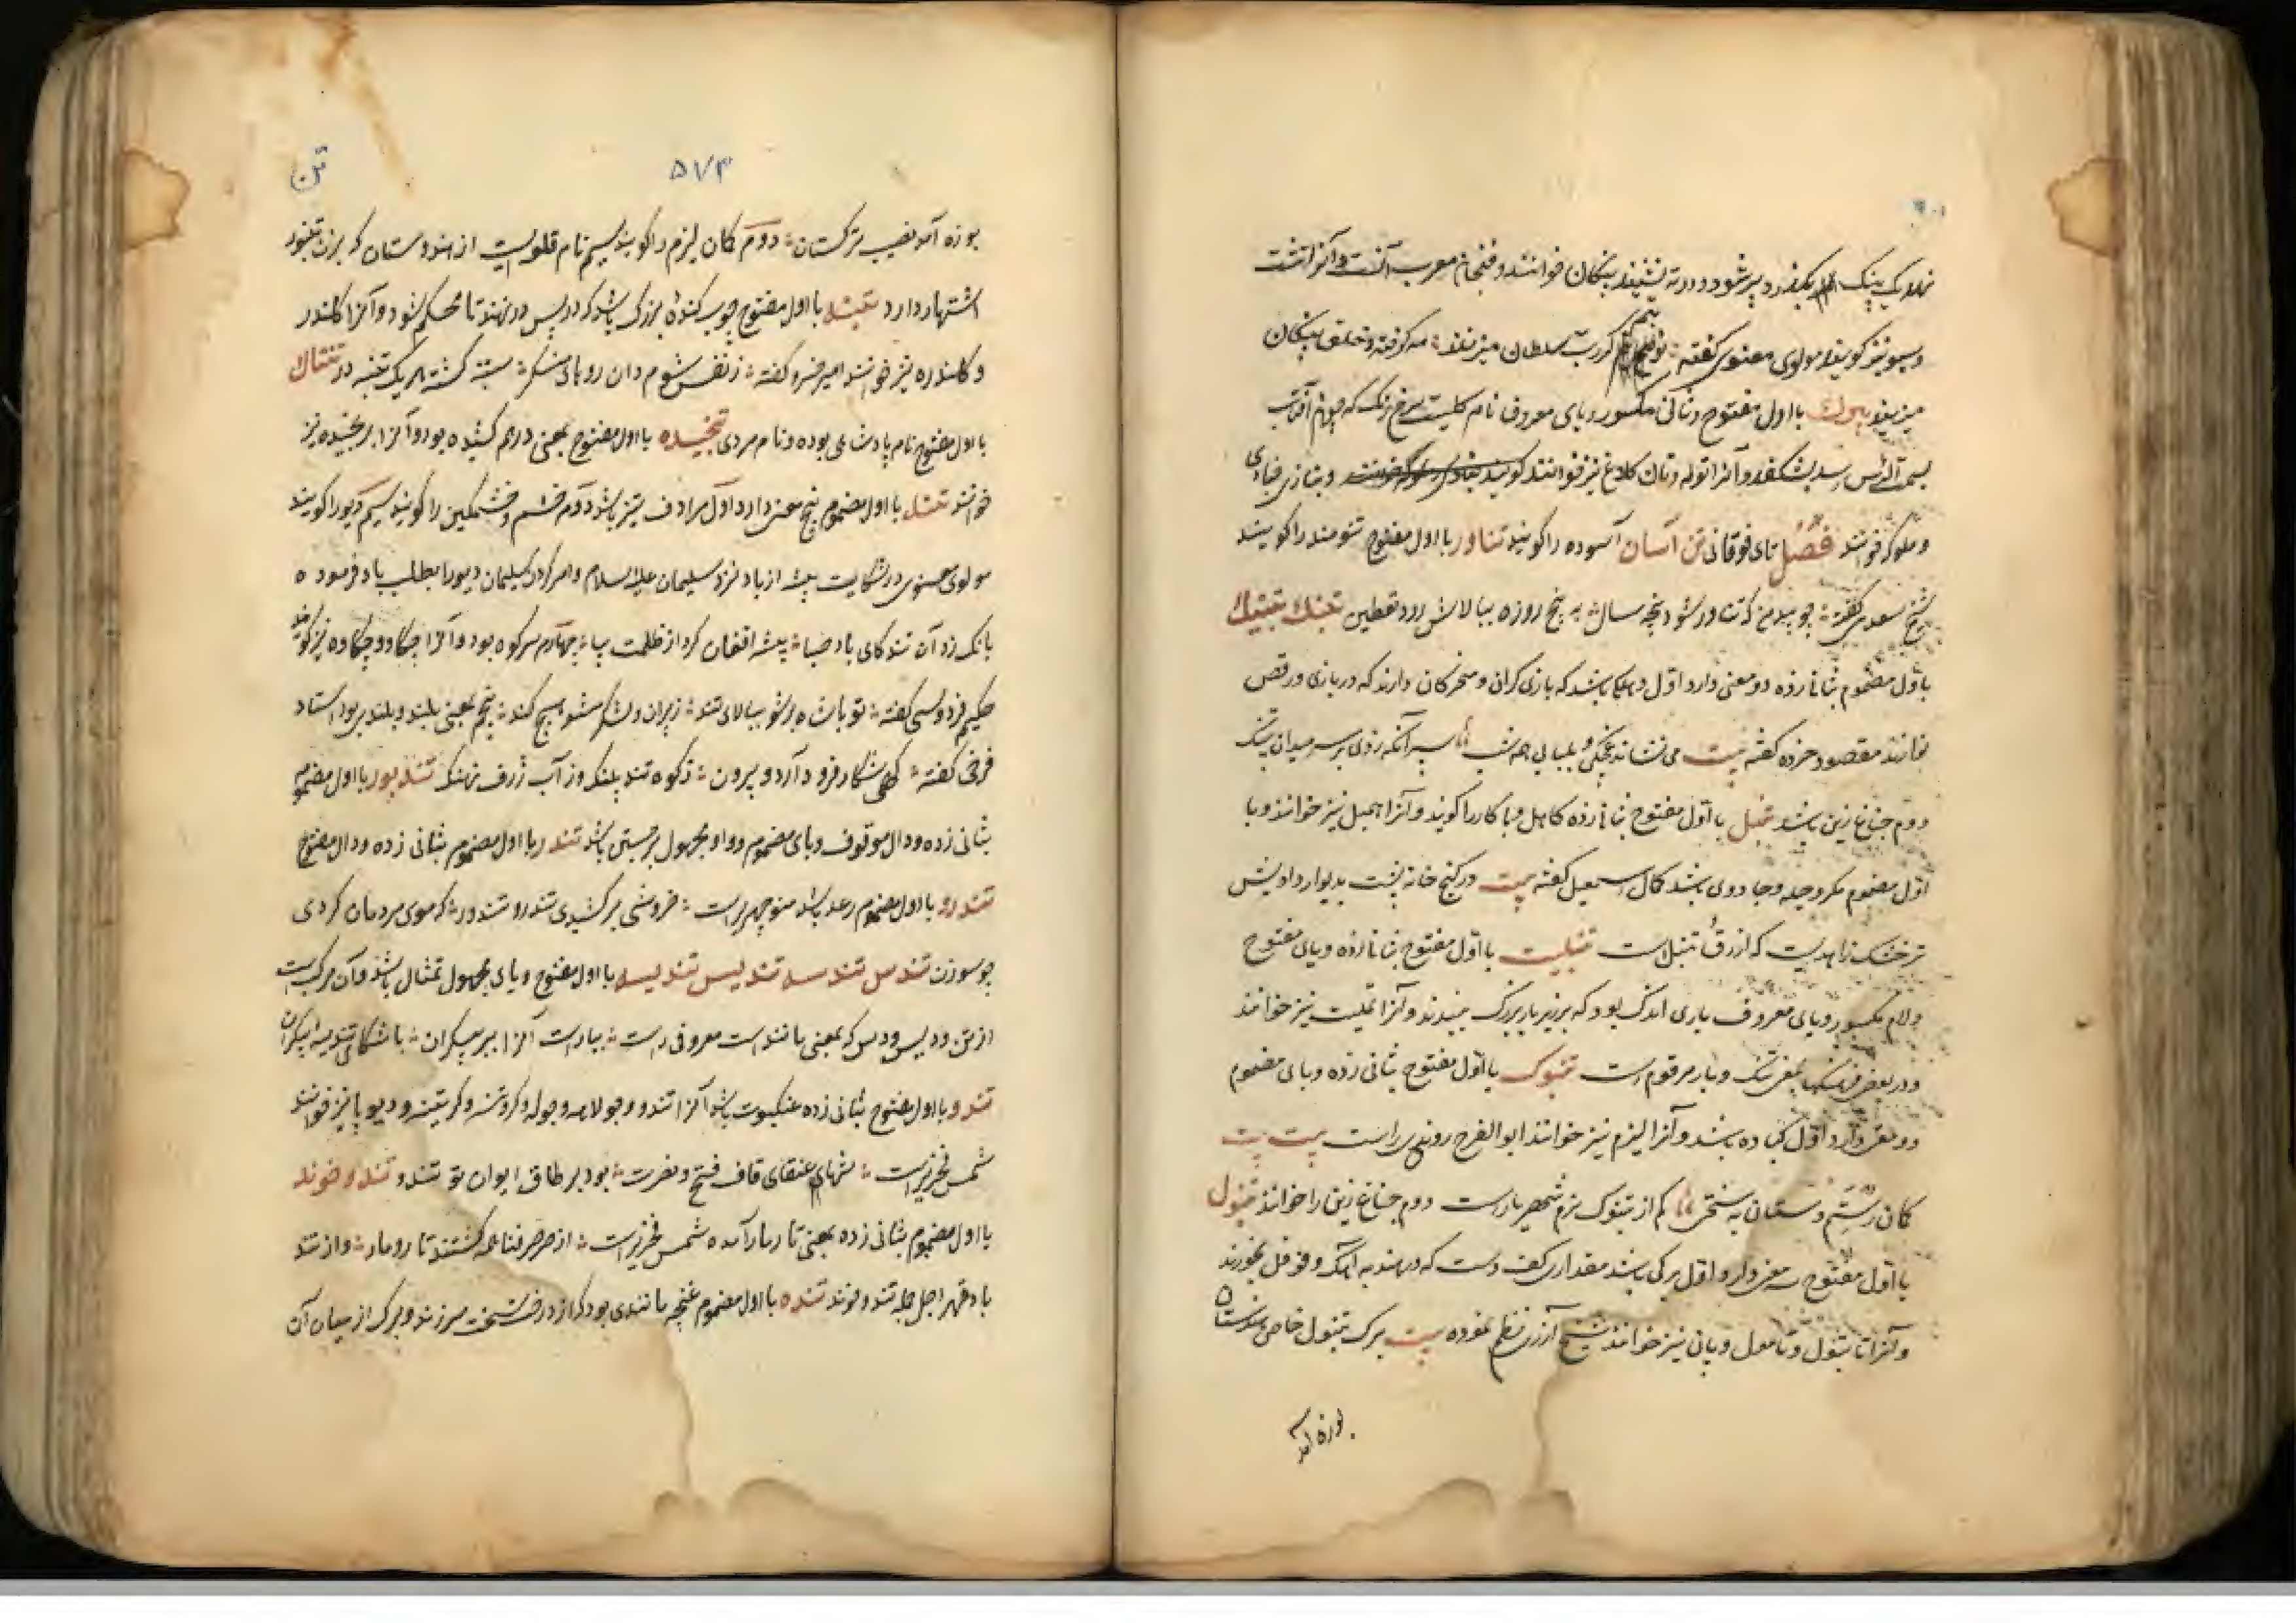 خوانند و فنجان معرب آنست و آنرا تشت
و سبو نیز گویند مولوی معنوی گفته نوبتم گر رب سلطان میزنند مه گرفته و خلق پنگان
میزنند بیرک با اول مفتوح و ثانی مکسور و یای معروف نام گلیست سرخ رنگ که چون آفتاب
بسمت الرأس رسد بشکفد و آنرا توله و نان کلاغ نیز خوانند و بتازی خبازی
و ملوک خوانند فصل تای فوقانی تن آسان آسوده را گویند تناور با اول مفتوح تنومند را گویند
شیخ سعدی گفته چو بید من که تناور شود به پنجه سال به پنج روزه ببالاش رود یقطین تنبک تنبتک
باول مضموم بثانی زده دو معنی دارد اول دهلکی باشد که بازیگران و مسخرگان دارند که در بازی و رقص
نوازند مقصود خرده گفته بیت می نشاند بر سر میدان تنبک
دوم جناغ زین باشد تنبل با اول مفتوح بثانی زده کاهل و بیکار را گویند و آنرا همبل نیز خوانند و با
اول مضموم مکر و حیله و جادوی باشد کمال اسمعیل گفته بیت در کنج خانه پشت بدیوار داده‌ایش
تر خشک زاهدیست که از زرق تنبل است تنبلیت با اول مفتوح بثانی زده و بای مفتوح
و لام مکسور و یای معروف باری اندک بود که بر زبر بار بزرگ ببندند و آنرا تملیت نیز خوانند
و در بعضی فرهنگها بمعنی تنگ و بار مرقوم است تنبوک با اول مفتوح بثانی زده و بای مضموم
دو معنی دارد اول کباده باشد و آنرا لیزم نیز خوانند ابوالفرج رونی راست بیت بیت
کمان رستم دستان به سختی کم از تنبوک بزم شهریار است دوم جناغ زین را خوانند تنبول
با اول مفتوح سه معنی دارد اول برگی باشد مقداری کف دست که در هند به آهک و فوفل بخورند
و آنرا تانبول و تامول و پان نیز خوانند شیخ آزری نظم نموده بیت برگ تنبول خاص هندوستان
بوزه آمد
تن
۵۷۴
بوزه آمد نصیب ترکستان دوم کمان لیزم را گویند سیم نام قلعه‌ایست از هندوستان که بزن تنبور
اشتهار دارد تنبه با اول مفتوح چوب کنده بزرگ باشد که در پس در نهند تا محکم شود و آنرا کلندر
و کلندره نیز خوانند امیر خسرو گفته ز نفس شوم دان بسته گشته هر یک تنبه در تنتال
با اول مفتوح نام پادشاهی بوده و نام مردی تنجیده با اول مفتوح بمعنی درهم کشیده بود و آنرا ترنجیده نیز
خوانند تند با اول مضموم پنج معنی دارد اول مرادف تیز باشد دوم خشم و خشمگین را گویند سیم دیو را گویند
مولوی معنوی در شکایت پشه از باد نزد سلیمان علیه السلام و امر کردن سلیمان دیو را بطلب باد فرموده
بانگ زد آن تند کای باد صبا پشه افغان کرد از ظلمت بیا چهارم سر کوه بود و آنرا چکاد و چکاده نیز گویند
حکیم فردوسی گفته تو با شاه برشو ببالای تند ز پیران و لشکر مشو هیچ کند پنجم بمعنی بلند و بلندی بود استاد
فرخی گفته گهی شکار فرود آرد و برون ز کوه تند پلنگ و ز آب ژرف نهنگ تندبور با اول مضموم
بثانی زده و دال موقوف و بای مضموم و واو مجهول برجستن باشد تندر با اول مضموم بثانی زده و دال مفتوح
تندرو با اول مضموم رعد باشد منوچهر راست خروشی برکشیدی تندرو تندور که موی مردمان کردی
چو سوزن تندس تندسه تندیس تندیسه با اول مفتوح و یای مجهول تمثال باشد و آن مرکب است
از تن و دیس و دس که بمعنی مانند است معروفی راست بیاراست آنرا ببر پیکران باشکال تندیسه پیکران
تندو با اول مفتوح بثانی زده عنکبوت باشد آنرا تندو و جولاهه و جوله و کروتنه و کرتینه و دیوپا نیز خوانند
شمس فخری راست شهای عنقای قاف فتح و نصرت بود بر طاق ایوان تو تندو تند و خوند
با اول مضموم بثانی زده بمعنی تارمار آمده شمس فخری راست از صرصر فنا همه گشتند تار و مار و از تند
باد قهر اجل جمله تند و خوند تنده با اول مضموم غنچه مانندی بود که از درخت نخست سر زند و برگ از میان آن